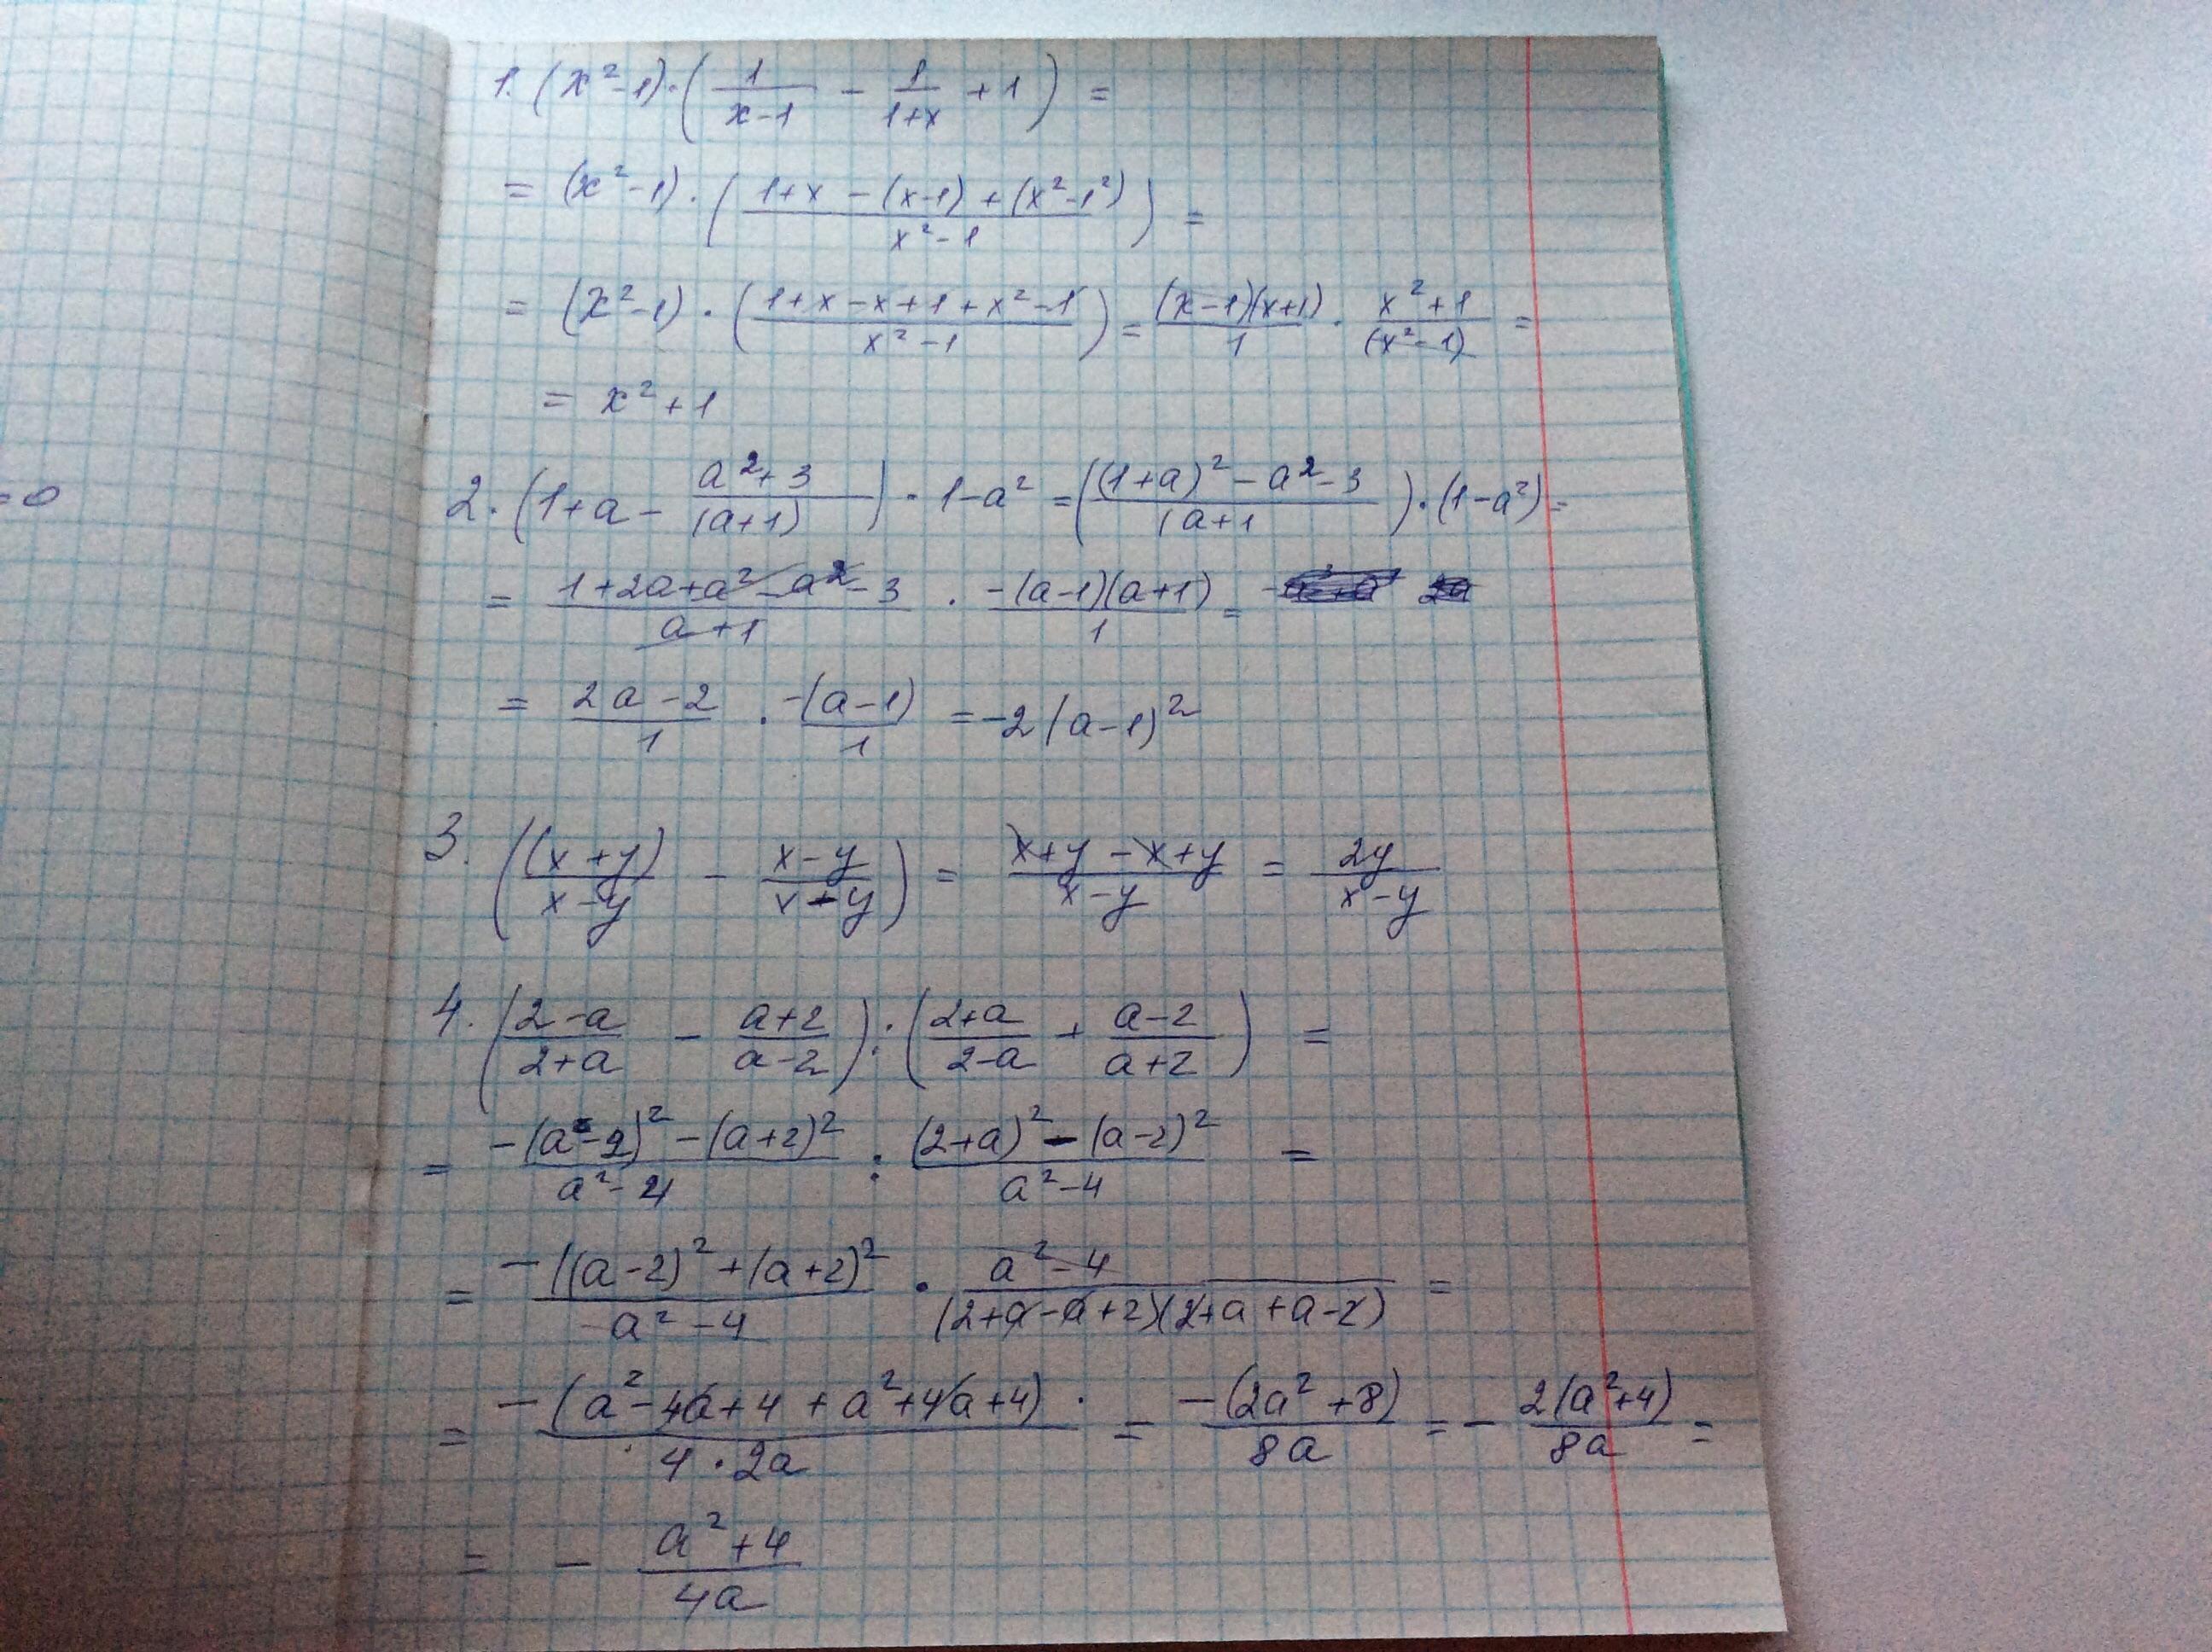 =0
1. (x²-1)·(1/(x-1) - 1/(1+x) + 1) =
= (x²-1)·((1+x-(x-1)+(x²-1²))/(x²-1)) =
= (x²-1)·((1+x-x+1+x²-1)/(x²-1)) = (x-1)(x+1)/1 · (x²+1)/(x²-1) =
= x²+1
2. (1+a - (a²+3)/(a+1)) · 1-a² = (((1+a)²-a²-3)/(a+1)·(1-a²) =
= (1+2a+a²-a²-3)/(a+1) · -(a-1)(a+1)/1 =
= (2a-2)/1 · -(a-1)/1 = -2(a-1)²
3. ((x+y)/(x-y) - (x-y)/(x-y)) = (x+y-x+y)/(x-y) = 2y/(x-y)
4. ((2-a)/(2+a) - (a+2)/(a-2)) : ((2+a)/(2-a) + (a-2)/(a+2)) =
= (-(a-2)²-(a+2)²)/(a²-4) : ((2+a)²-(a-2)²)/(a²-4) =
= -((a-2)²+(a+2)²/(a²-4) · (a²-4)/((2+a-a+2)(2+a+a-2)) =
= -(a²-4a+4+a²+4a+4)·/(4·2a) = -(2a²+8)/8a = - 2(a²+4)/8a =
= - (a²+4)/4a